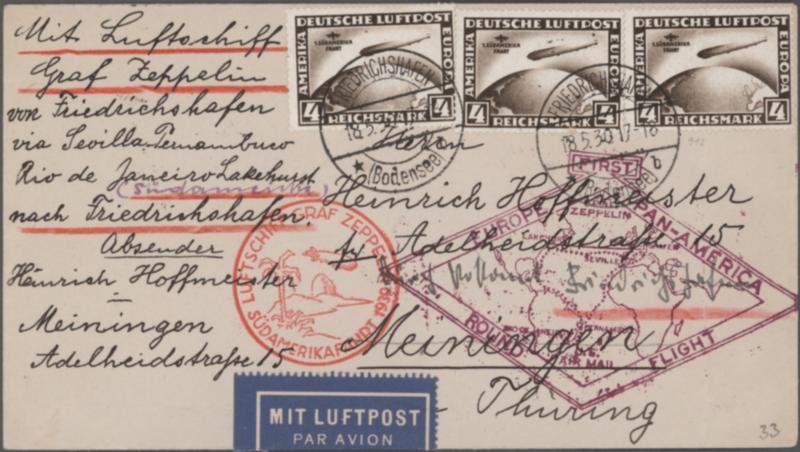 Mit Luftschiff
Graf Zeppelin
von Friedrichshafen
via Sevilla Pernambuco
Rio de Janeiro Lakehurst
(Südamerika)
nach Friedrichshafen.
Absender
Heinrich Hoffmeister
Meiningen
Adelheidstraße 15
DEUTSCHE LUFTPOST
AMERIKA
EUROPA
1. SÜDAMERIKA
FAHRT
4 REICHSMARK 4
DEUTSCHE LUFTPOST
AMERIKA
EUROPA
1. SÜDAMERIKA
FAHRT
4 REICHSMARK 4
DEUTSCHE LUFTPOST
AMERIKA
EUROPA
1. SÜDAMERIKA
FAHRT
4 REICHSMARK 4
FRIEDRICHSHAFEN
18.5.30
(Bodensee)
FRIEDRICHSHAFEN
18.5.30 17-18
(Bodensee) b
Herrn
Heinrich Hoffmeister
Adelheidstraße 15
Friedrichshafen
Meiningen
Thüring
LUFTSCHIFF GRAF ZEPPELIN
SÜDAMERIKAFAHRT 1930
FIRST
EUROPE PAN-AMERICA
ZEPPELIN
LAKEHURST
SEVILLE
RIO DE JANEIRO
PERNAMBUCO
U.S.
AIR MAIL
ROUND FLIGHT
MIT LUFTPOST
PAR AVION
33